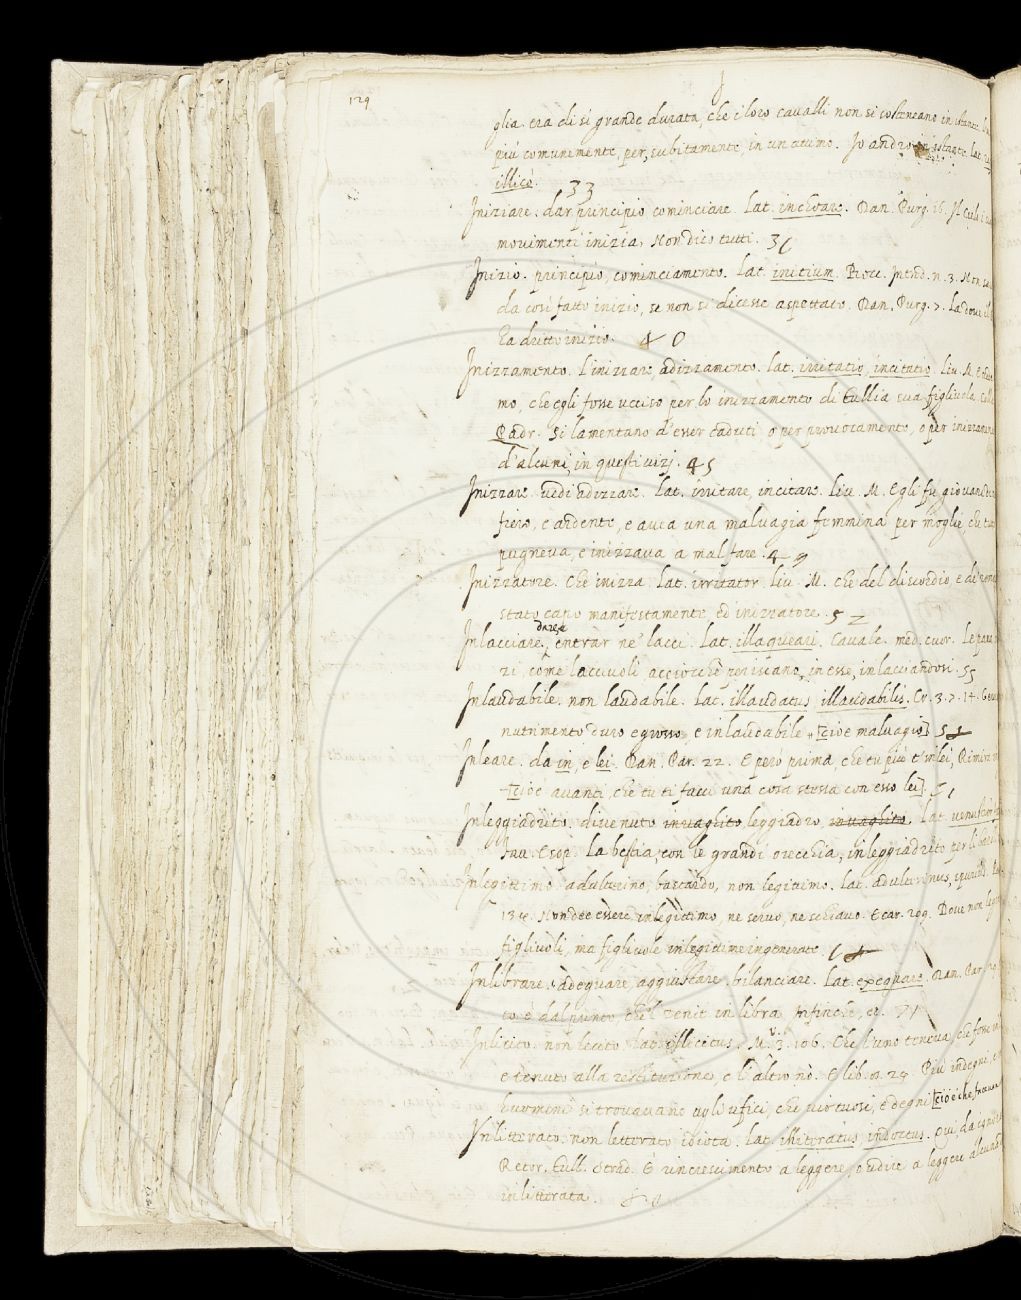 129
I
glia era di si grande durata, che i loro cavalli non si sosteneano in
più comunemente, per, subitamente, in un attimo. Io andro Lat.
illicò. 33
Iniziare. dar principio cominciare. Lat. inchoare. Dan. Purg. 16. Il Cielo i
movimenti inizia, Non dico tutti. 36
Inizio. principio, cominciamento. Lat. initium. Bocc. Introd. n. 3. Non
da così fatto inizio, se non si dicesse aspettato. Dan. Purg. 7. La dove il
ha dritto inizio. 40
Inizzamento. L'inizzare, adizzamento. Lat. irritatio, incitatio. Liv. M.
mo, che egli fosse ucciso per lo inizzamento di Tullia sua figliuola. Coll.
Padr. Si lamentano d'esser caduti o per provocamento, o per
d'alcuni, in questi vizj. 45
Inizzare. vedi adizzare. Lat. irritare, incitare. Liv. M. Egli fu giovane
fiero, e ardente, e avea una malvagia femmina per moglie che
pugneva, e inizzava a mal fare. 49
Inizzatore. Che inizza. Lat. irritator. Liv. M. che del discordio, e di
stato capo manifestamente, ed inizzatore. 52
Inlacciare, dare, e entrar ne' lacci. Lat. illaqueari. Cavalc. med. cuor. Le
ri come lacciuoli acciocchè periscano, in esse, inlacciandosi. 55
Inlaudabile. non laudabile. Lat. illaudatus illaudabilis. Cr. 3. 7. 14.
nutrimento duro e grosso e inlaudabile [cioè malvagio]
Inleare. da in, e lei. Dan. Par. 22. E però prima, che tu più t'inlei, Rimira
[cioè avanti, che tu ti facci una cosa stessa con esso lei] 61
Inleggiadrito. divenuto invaghito leggiadro, invaghito. Lat.
Fav. Esop. La bestia, con le grandi orecchia, inleggiadrito per li
Inlegittimo adulterino, bastardo, non legittimo. Lat. adulterinus, spurius.
134. Non dee essere inlegittimo, ne servo, ne schiavo. E car. 209. Dove non
figliuoli, ma figliuole inlegittime ingenerate
Inlibrare. adeguare, aggiustare. bilanciare. Lat. exequare. Dan. Par.
to è dal punto che 'l zenit in libra Infinchè, ec. 71
Inlicito. non lecito. Lat. illicitus. M. V. 3. 106. Che l'uno teneva, che fosse
e tenuto alla restituzione, e l'altro nò. E lib. 9. 29. Più indegni,
huomini si trovavano agli ufici, che virtuosi, e degni [cioè che
Inlitterato. non letterato idiota. Lat. illiteratus, indoctus.
Retor. Tull. Strad. È rincrescimento a leggere, o udire a leggere
inlitterata.